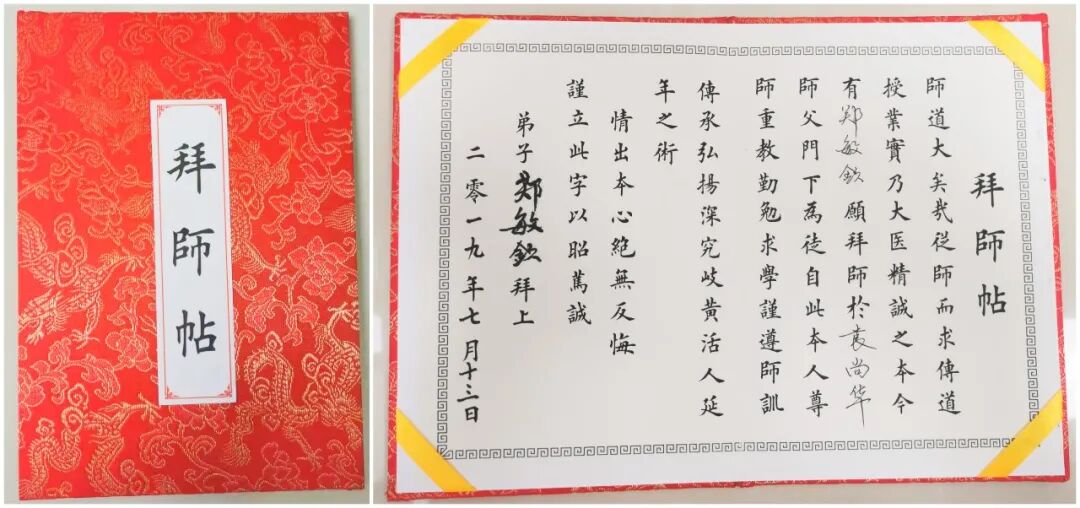 拜師帖
拜師帖
師道大矣哉從師而求傳道
授業實乃大医精誠之本今
有郑敏欽願拜師於袁尚华
師父門下為徒自此本人尊
師重教勤勉求學謹遵師訓
傳承弘揚深究岐黄活人延
年之術
情出本心絕無反悔
謹立此字以昭篤誠
弟子郑敏欽拜上
二零一九年七月十三日